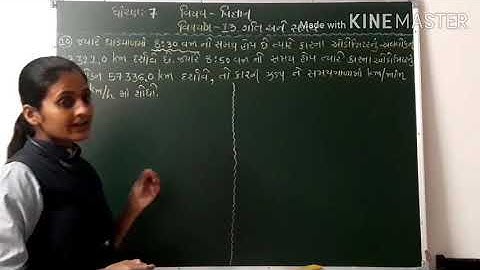 ધોરણ: 7 વિષય - વિજ્ઞાન
13 ગતિ અને સમય
Made with KINEMASTER
(10) જ્યારે ઘડિયાળમાં 8:30 નો સમય હોય છે ત્યારે કારના ઓડોમીટરનું
.0 km દર્શાવે છે. જ્યારે 8:50 નો સમય હોય ત્યારે કારના ઓડોમીટરનું
57336.0 km દર્શાવે, તો કારની ઝડપ ને સમયગાળામાં km/min
km/h માં શોધો.